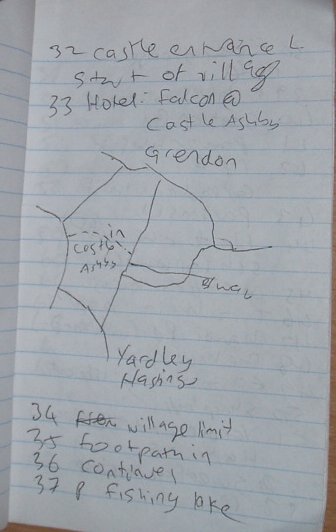 32 castle entrance L
start of village
33 Hotel: Falcon @
Castle Ashby
Grendon
in
Castle
Ashby
Yardley
Hastings
34 village limit
35 footpath in
36 continues
37 P fishing lake